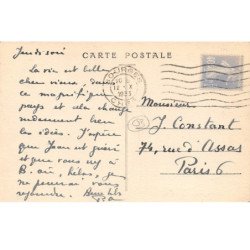 CARTE POSTALE
Jeudi soir
La vie est belle
chers vieux, dans ce
magnifique
pays et ela change
rudement bien
les idées. J'espère
que Jean est guéri
et que vous irez
B. air, hélas, je
ne pourrai vous
rejoindre.
BOURGES
1935
CHER
Monsieur
J. Constant
74, rue d'Assas
Paris 6